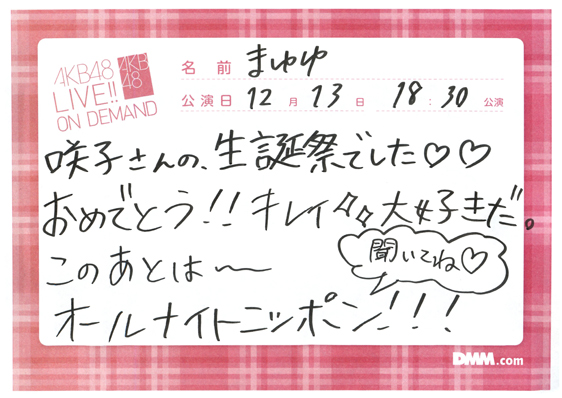 AKB48
LIVE!!
ON DEMAND
AKB
48
名前 まゆゆ
公演日 12月13日 18:30公演
咲子さんの、生誕祭でした♡♡
おめでとう!! キレイ 大好きだ。
このあとは〜
聞いてね♡
オールナイトニッポン!!!
DMM.com